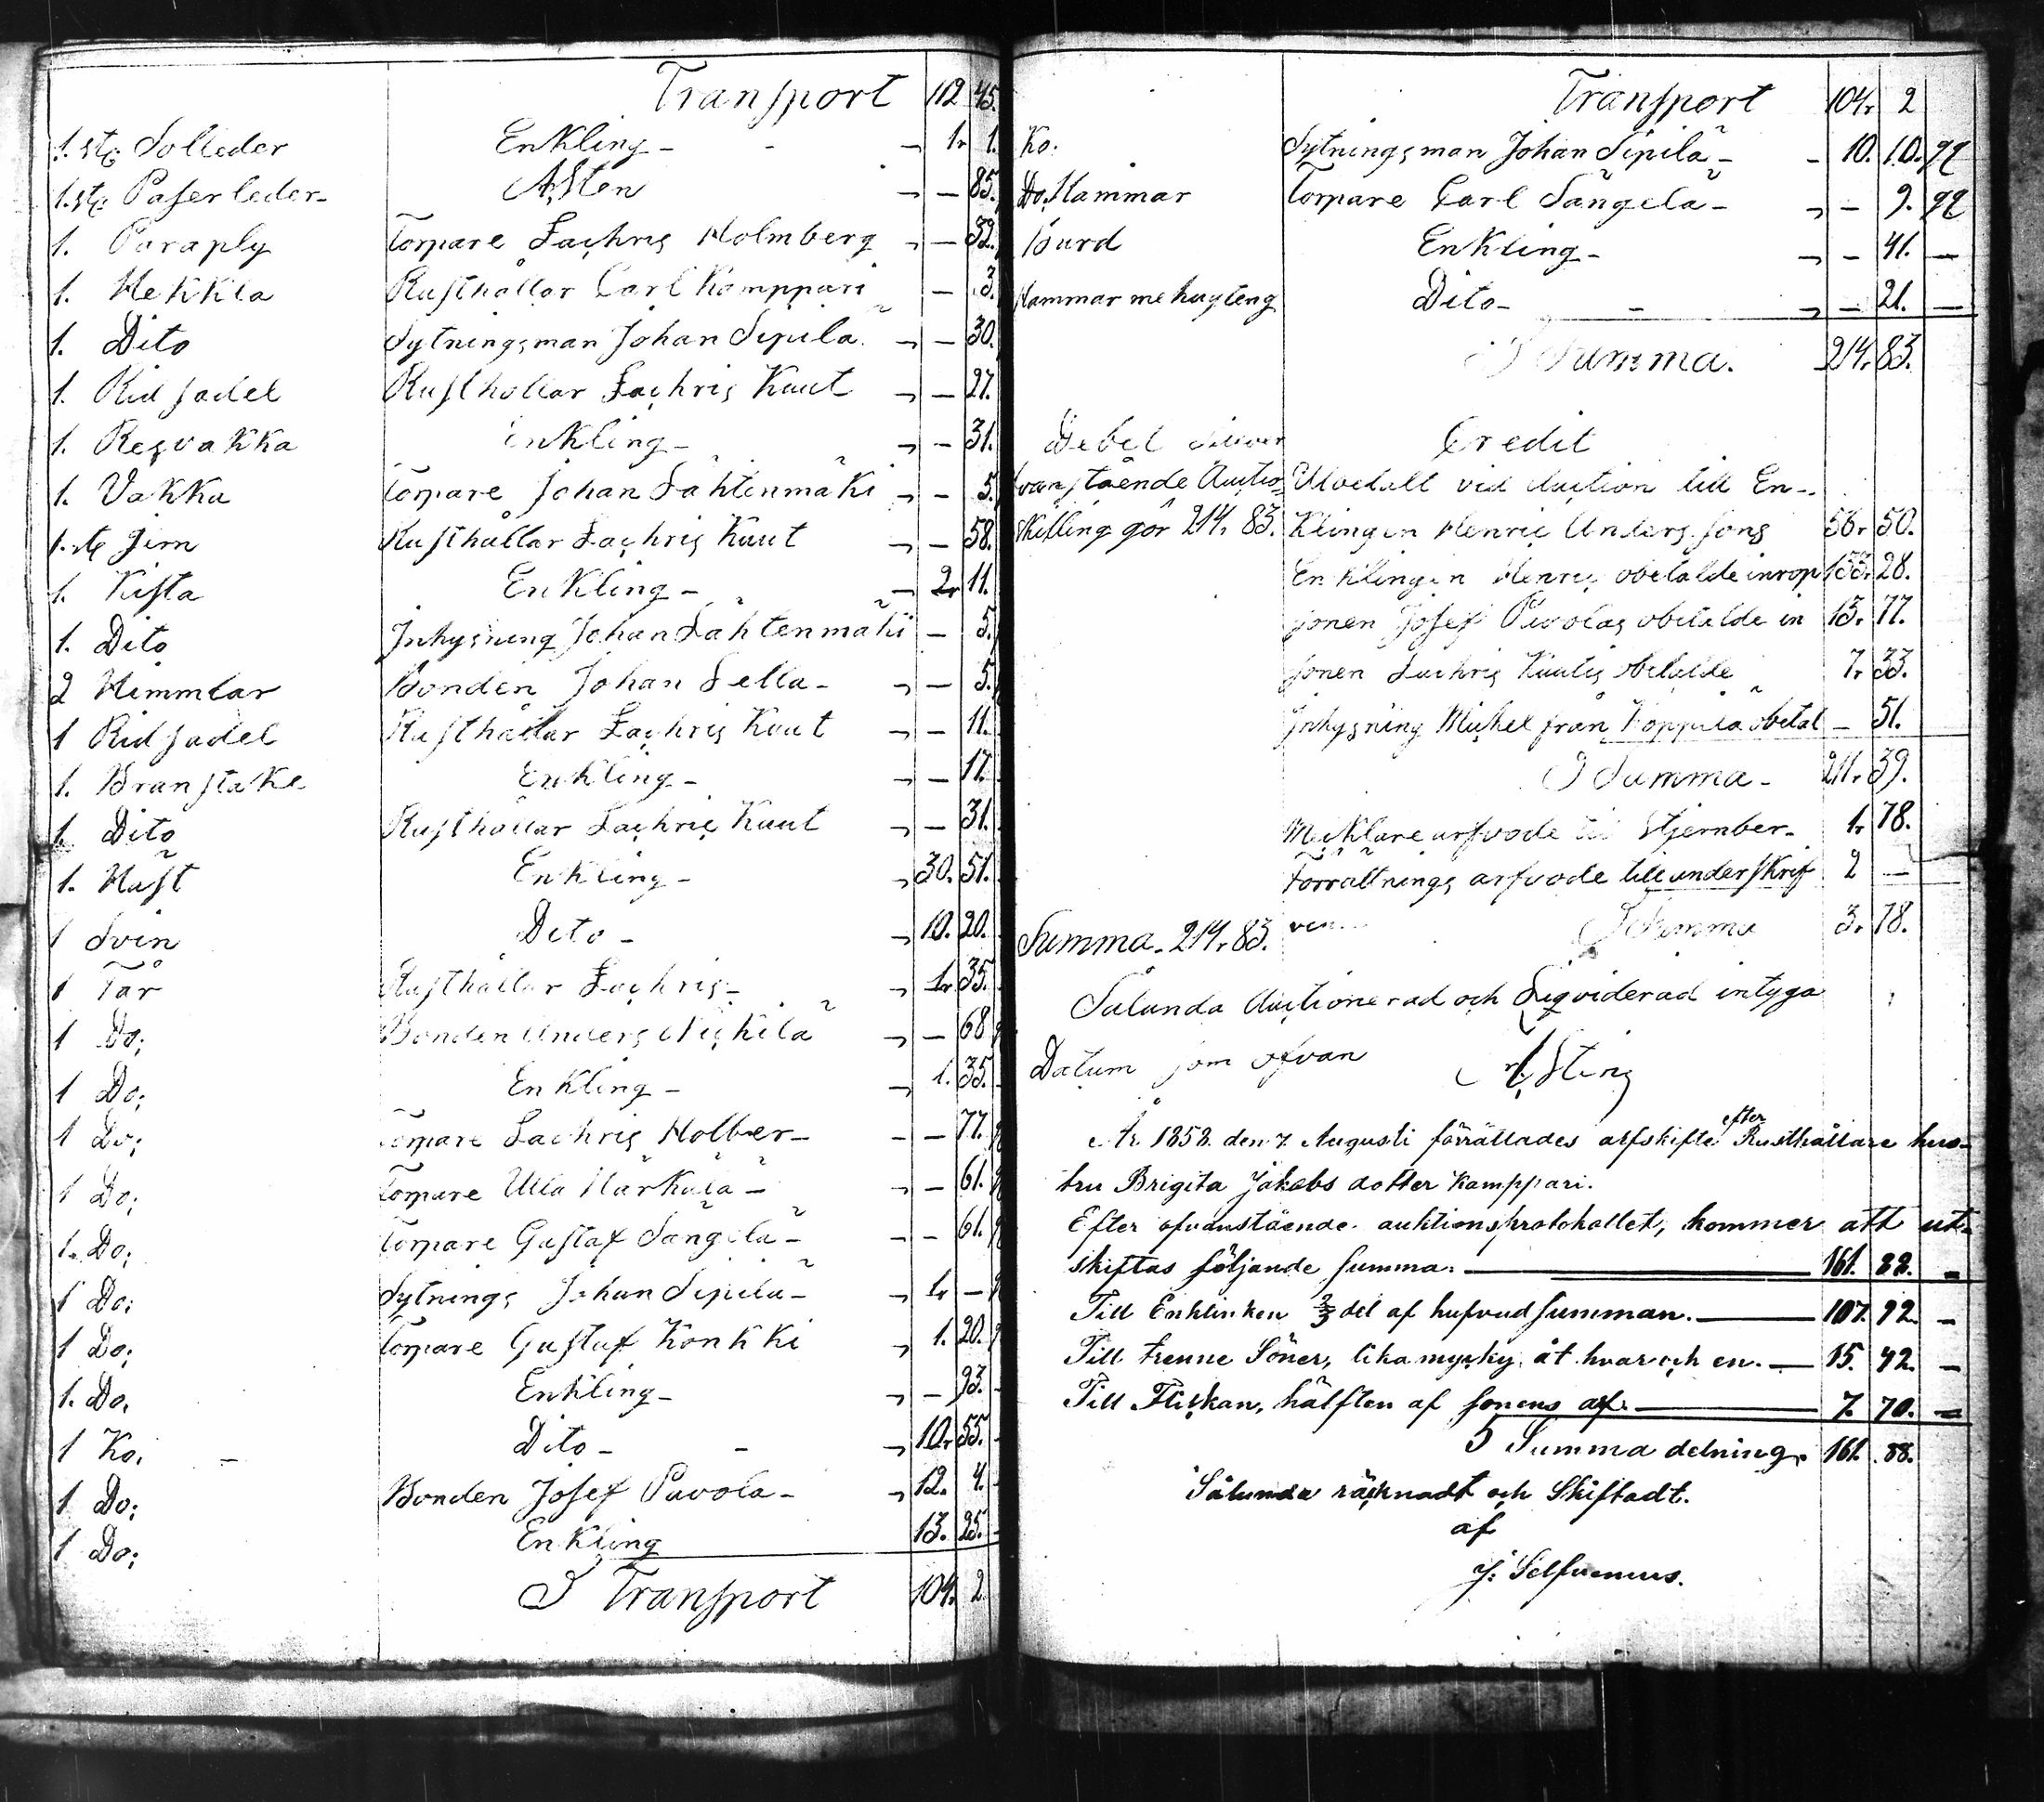 Transport 112 45.
1. st: Solleder Enkling - - 1r 1.
1. st: Paserleder - A, Sten - 85.
1. Paraply Torpare Zachris Holmberg - 32.
1. Hekkla Rusthållar Carl Kamppari - 3.
1. Dito Sytningsman Johan Sipilä. - 30.
1. Ridsadel Rusthollar Zachris Kuut - 27.
1. Resvakka Enkling - - 31.
1. Vakka Torpare Johan Lähtenmäki - 5.
1. st Jern Rusthållar Zachris Kuut - 58.
1. Kista Enkling - 2r 11.
1. Dito Inhysning Johan Lähtenmäki - 5.
2 Himmlar Bonden Johan Sella - - 5.
1 Ridsadel Rusthållar Zachris Kuut - 11.
1. Branstake Enkling - - 17.
1. Dito Rusthållar Zachris Kuut - 31.
1. Häst Enkling - 30. 51.
1 Svin Dito - 10. 20.
1 Får Rusthållar Zachris - 1r 35.
1 Do; Bonden Anders Niskila - 68
1 Do; Enkling - 1. 35.
1 Do; Torpare Zachris Holber - - 77.
1 Do; Torpare Ulla Härkälä - - 61.
1. Do; Torpare Gustaf Sängelä - - 61.
1 Do; Sytnings Johan Sipilä - 1r -
1 Do; Torpare Gustaf Konkki 1. 20.
1. Do, Enkling - - 93.
1 Ko. - Dito - - 10r 55.
1 Do; Bonden Josef Pavola - 12. 4.
1 Do; Enkling 13. 25.
S Transport 104. 2.
Transport 104r 2
Ko. Sytningsman Johan Sipilä - - 10. 10. 92
Do, Hammar Torpare Carl Sängelä - - 9. 92
Burd Enkling - - 41. -
Hammar me huyteng Dito - - - 21. -
S Summa. 214. 83.
Debet Credit
ovanstående Auctio Utbetalt vid Auction till En-
skilling gör 214r 83. Klingen Henric Anders sons 56r 50.
Enklingen Henric obetalde inrop 133r 28.
sonen Josef Pavolas obetalde in 13r 77.
sonen Zachris Kuutis obetalde 7r 33.
Inhysning Mickel från Koppula obetal - 51.
S Summa - 211r 39.
Mäklare arfvode till Stjernber - 1r 78.
Förrättnings arfvode till underskrif 2 -
ven. S Summa 3r 78.
Summa - 214r 83.
Sålunda Auctionerad och Liqviderad intyga
Datum som ofvan A. Sting
År 1858. den 7 Augusti förrättades arfskifte efter Rusthållare hus-
tru Brigita Jakobs dotter Kamppari.
Efter ofvanstående auktionsprotokollet, kommer att ut-
skiftas följande summa. 161. 88. -
Till Enklinken 2/3 del af hufvudsumman. 107. 92. -
Till trenne Söner, lika mycky åt hvar och en. 15. 42. -
Till Flickan, hälften af sonens arf. 7. 70. -
S Summa delning. 161. 88.
Sålunda räcknadt och Skiftadt.
af
J: